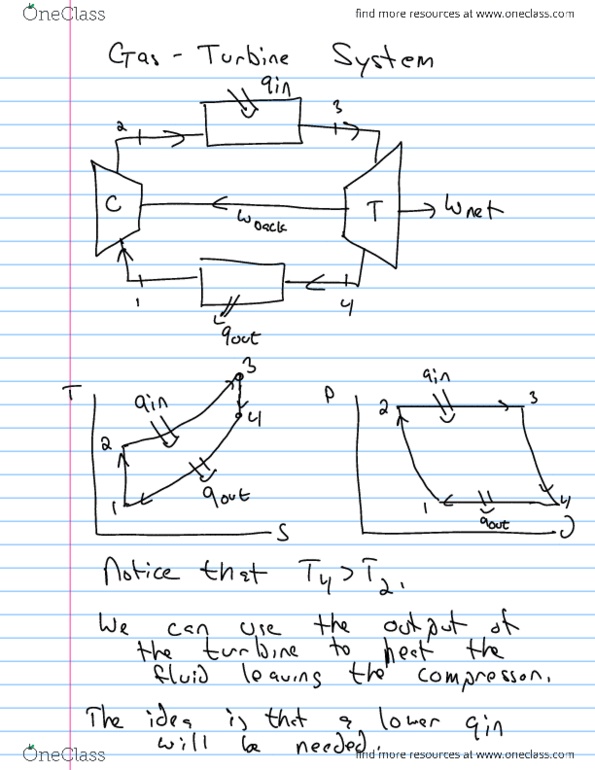 OneClass
find more resources at www.oneclass.com
Gas - Turbine System
qin
2
3
C
wback
T
wnet
1
4
qout
T
3
qin
4
2
qout
1
S
P
qin
2
3
1
4
qout
υ
Notice that T4 > T2.
We can use the output of
the turbine to heat the
fluid leaving the compressor.
The idea is that a lower qin
will be needed.
OneClass
find more resources at www.oneclass.com